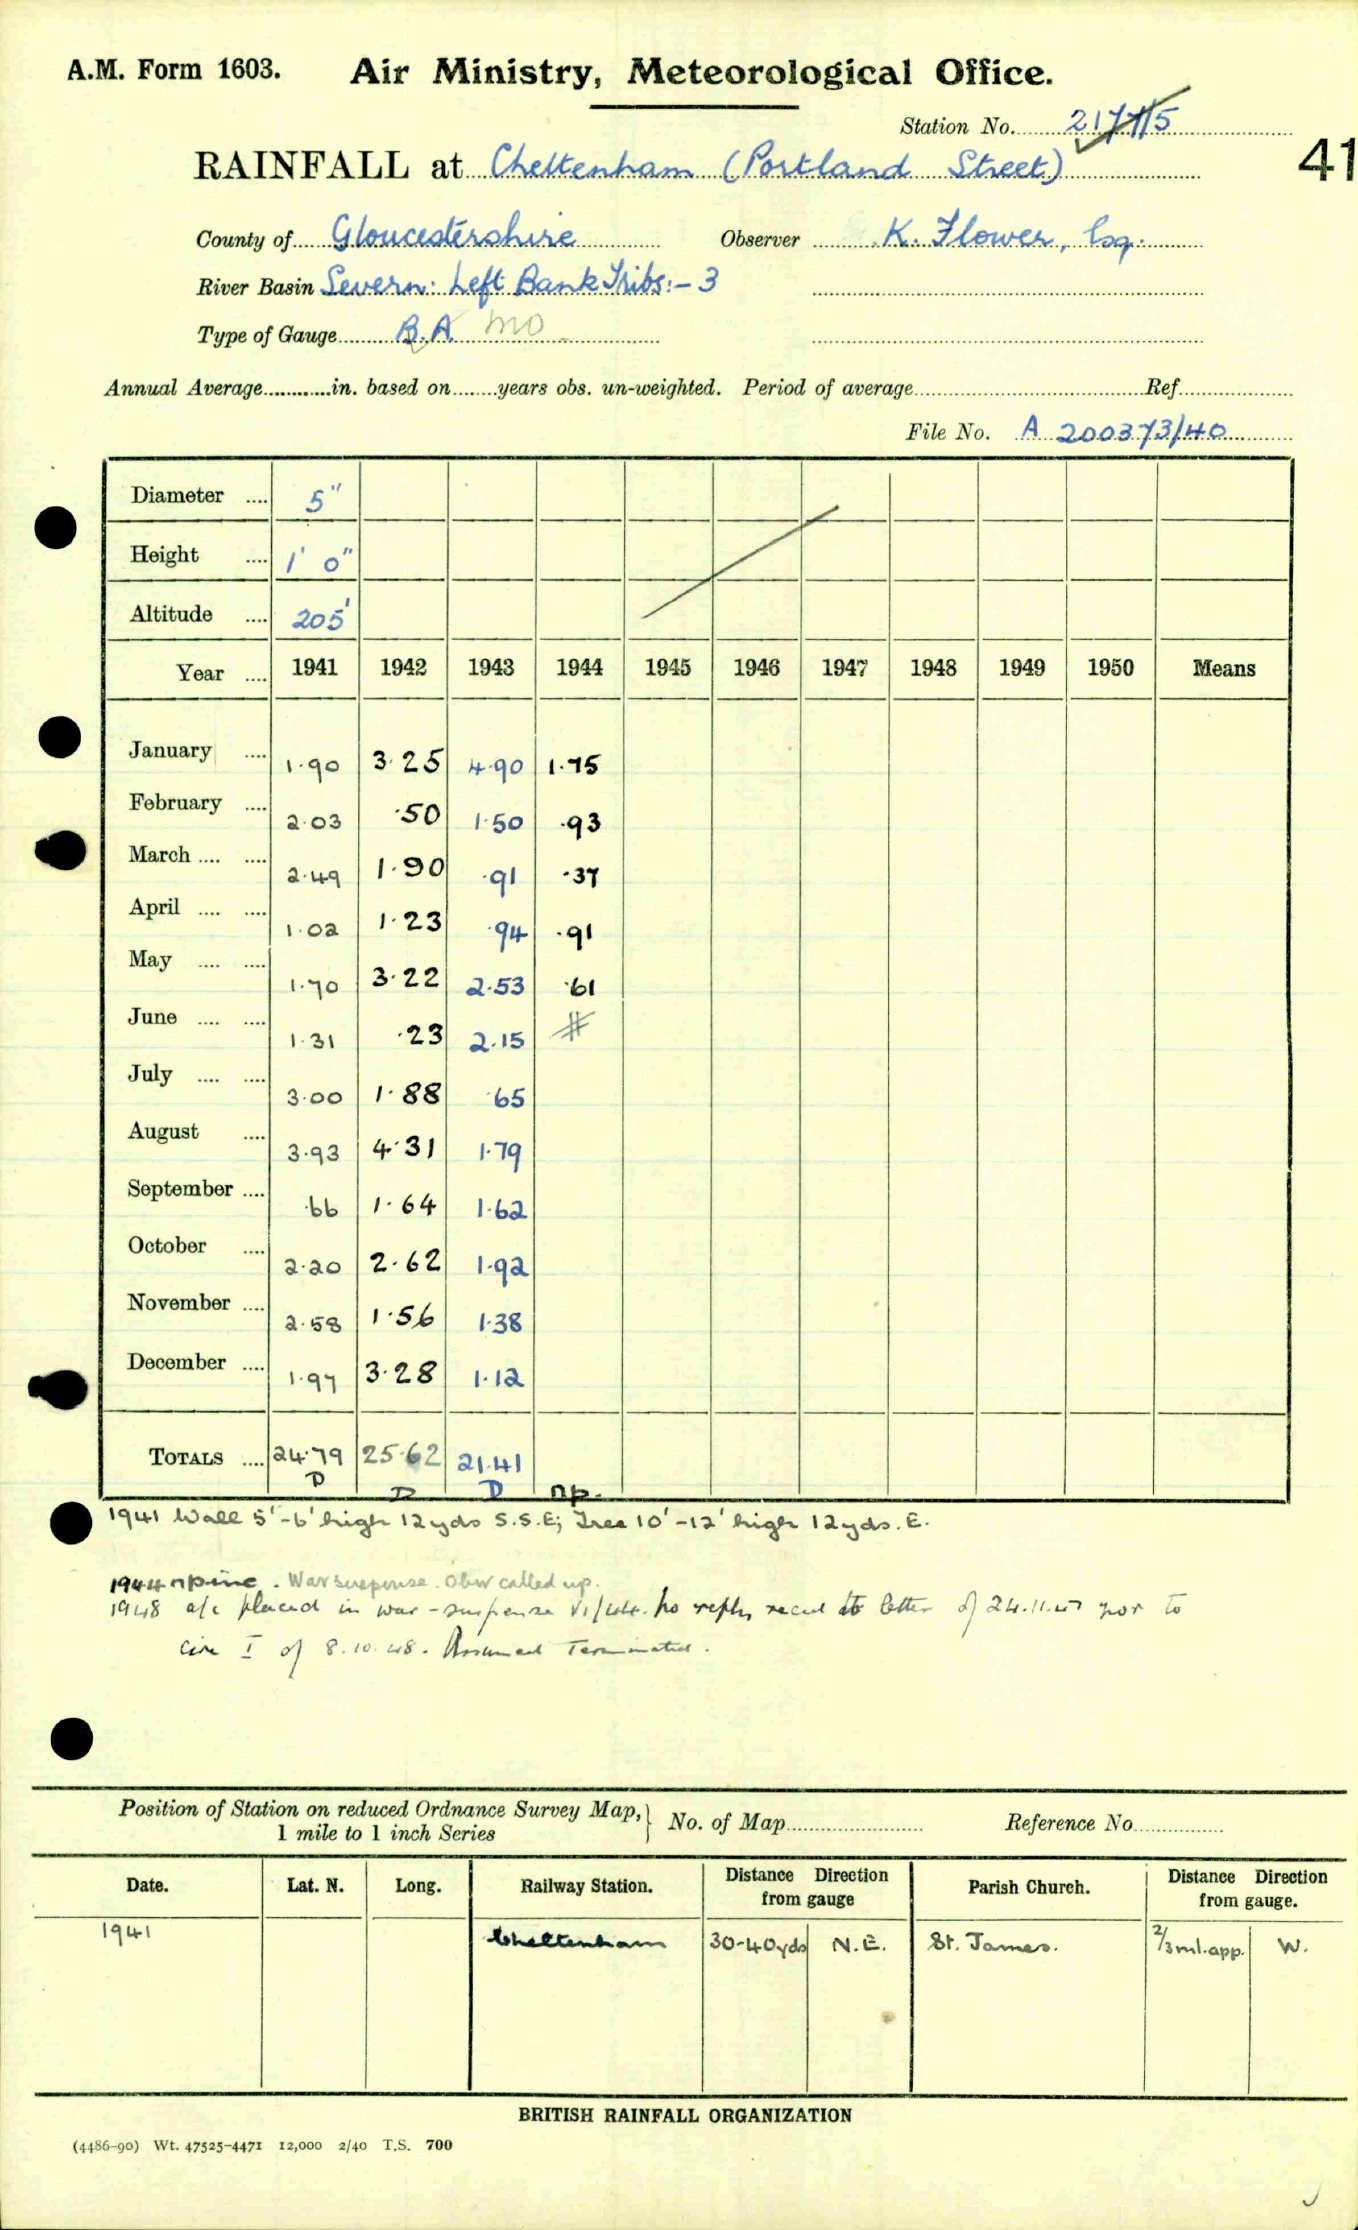 A.M. Form 1603. Air Ministry, Meteorological Office.
Station No. 2177/5
41
RAINFALL at Cheltenham (Portland Street)
County of Gloucestershire Observer K. Flower, Esq.
River Basin Severn: Left Bank Tribs:- 3
Type of Gauge B.A. MO
Annual Average in. based on years obs. un-weighted. Period of average Ref.
File No. A 200373/40
Diameter .... 5"
Height .... 1' 0"
Altitude .... 205'
Year .... 1941 1942 1943 1944 1945 1946 1947 1948 1949 1950 Means
January .... 1·90 3·25 4·90 1·75
February .... 2·03 ·50 1·50 ·93
March .... .... 2·49 1·90 ·91 ·37
April .... .... 1·02 1·23 ·94 ·91
May .... .... 1·70 3·22 2·53 ·61
June .... .... 1·31 ·23 2·15 #
July .... .... 3·00 1·88 ·65
August .... 3·93 4·31 1·79
September .... ·66 1·64 1·62
October .... 2·20 2·62 1·92
November .... 2·58 1·56 1·38
December .... 1·97 3·28 1·12
TOTALS .... 24·79 25·62 21·41
D D D np.
1941 Wall 5'-6' high 12yds S.S.E; Tree 10'-12' high 12yds. E.
1944 np inc. War suspense. Obsr called up.
1948 a/c placed in war-suspense VI/44. No reply recd to letter of 24.11.47 nor to
circ I of 8.10.48. Assumed Terminated.
Position of Station on reduced Ordnance Survey Map, No. of Map Reference No
1 mile to 1 inch Series
Date. Lat. N. Long. Railway Station. Distance Direction from gauge Parish Church. Distance Direction from gauge.
1941 Cheltenham 30-40yds N.E. St. James. 2/3 ml. app. W.
BRITISH RAINFALL ORGANIZATION
(4486-90) Wt. 47525-4471 12,000 2/40 T.S. 700